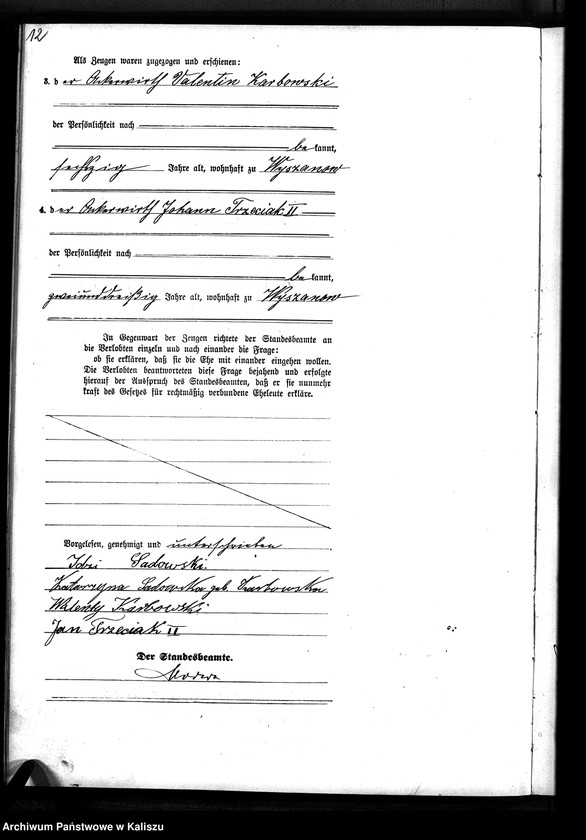 12
Als Zeugen waren zugezogen und erschienen:
3. der Ackerwirth Valentin Karbowski
der Persönlichkeit nach
bekannt,
sechzig Jahre alt, wohnhaft zu Wyszanow
4. der Ackerwirth Johann Trzeciak II
der Persönlichkeit nach
bekannt,
zweiunddreißig Jahre alt, wohnhaft zu Wyszanow
In Gegenwart der Zeugen richtete der Standesbeamte an
die Verlobten einzeln und nach einander die Frage:
ob sie erklären, daß sie die Ehe mit einander eingehen wollen.
Die Verlobten beantworteten diese Frage bejahend und erfolgte
hierauf der Ausspruch des Standesbeamten, daß er sie nunmehr
kraft des Gesetzes für rechtmäßig verbundene Eheleute erkläre.
Vorgelesen, genehmigt und unterschrieben
Sadowski
Katarzyna Sadowska geb. Karbowska
Walenty Karbowski
Jan Trzeciak II
Der Standesbeamte.
Archiwum Państwowe w Kaliszu